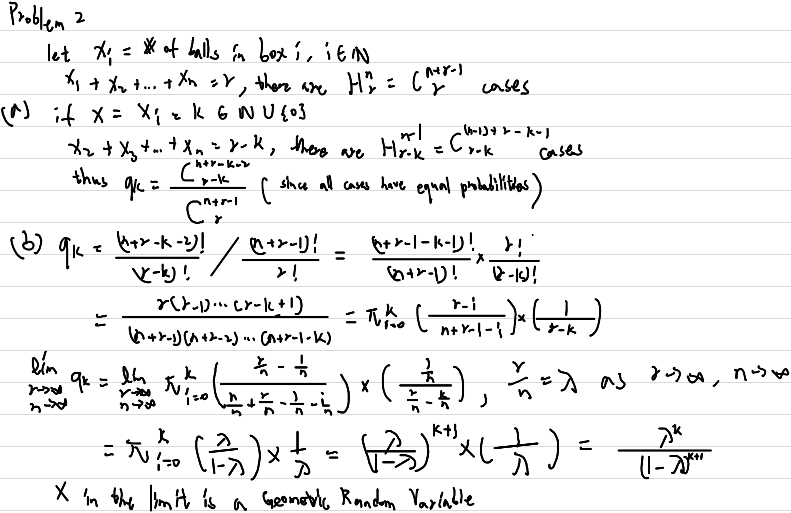 Problem 2
let x_i = # of balls in box i, i ∈ N
x_1 + x_2 + ... + x_n = r, there are H^n_r = C^{n+r-1}_r cases
(a) if X = X_1 = k ∈ N ∪ {0}
x_2 + x_3 + ... + x_n = r-k, there are H^{n-1}_{r-k} = C^{(n-1)+r-k-1}_{r-k} cases
thus q_k = C^{n+r-k-2}_{r-k} / C^{n+r-1}_r (since all cases have equal probabilities)
(b) q_k = (n+r-k-2)! / (r-k)! / (n+r-1)! / r! = (n+r-1-k-1)! / (n+r-1)! × r! / (r-k)!
= r(r-1)...(r-k+1) / (n+r-1)(n+r-2)...(n+r-1-k) = π^k_{i=0} ( (r-i) / (n+r-1-i) ) × ( 1 / (r-k) )
lim_{r→∞ n→∞} q_k = lim_{r→∞ n→∞} π^k_{i=0} ( (r/n - i/n) / (n/n + r/n - 1/n - i/n) ) × ( (1/n) / (r/n - k/n) ), r/n = λ as r→∞, n→∞
= π^k_{i=0} ( λ / (1-λ) ) × 1/λ = ( λ / (1-λ) )^{k+1} × ( 1/λ ) = λ^k / (1-λ)^{k+1}
X in the limit is a Geometric Random Variable